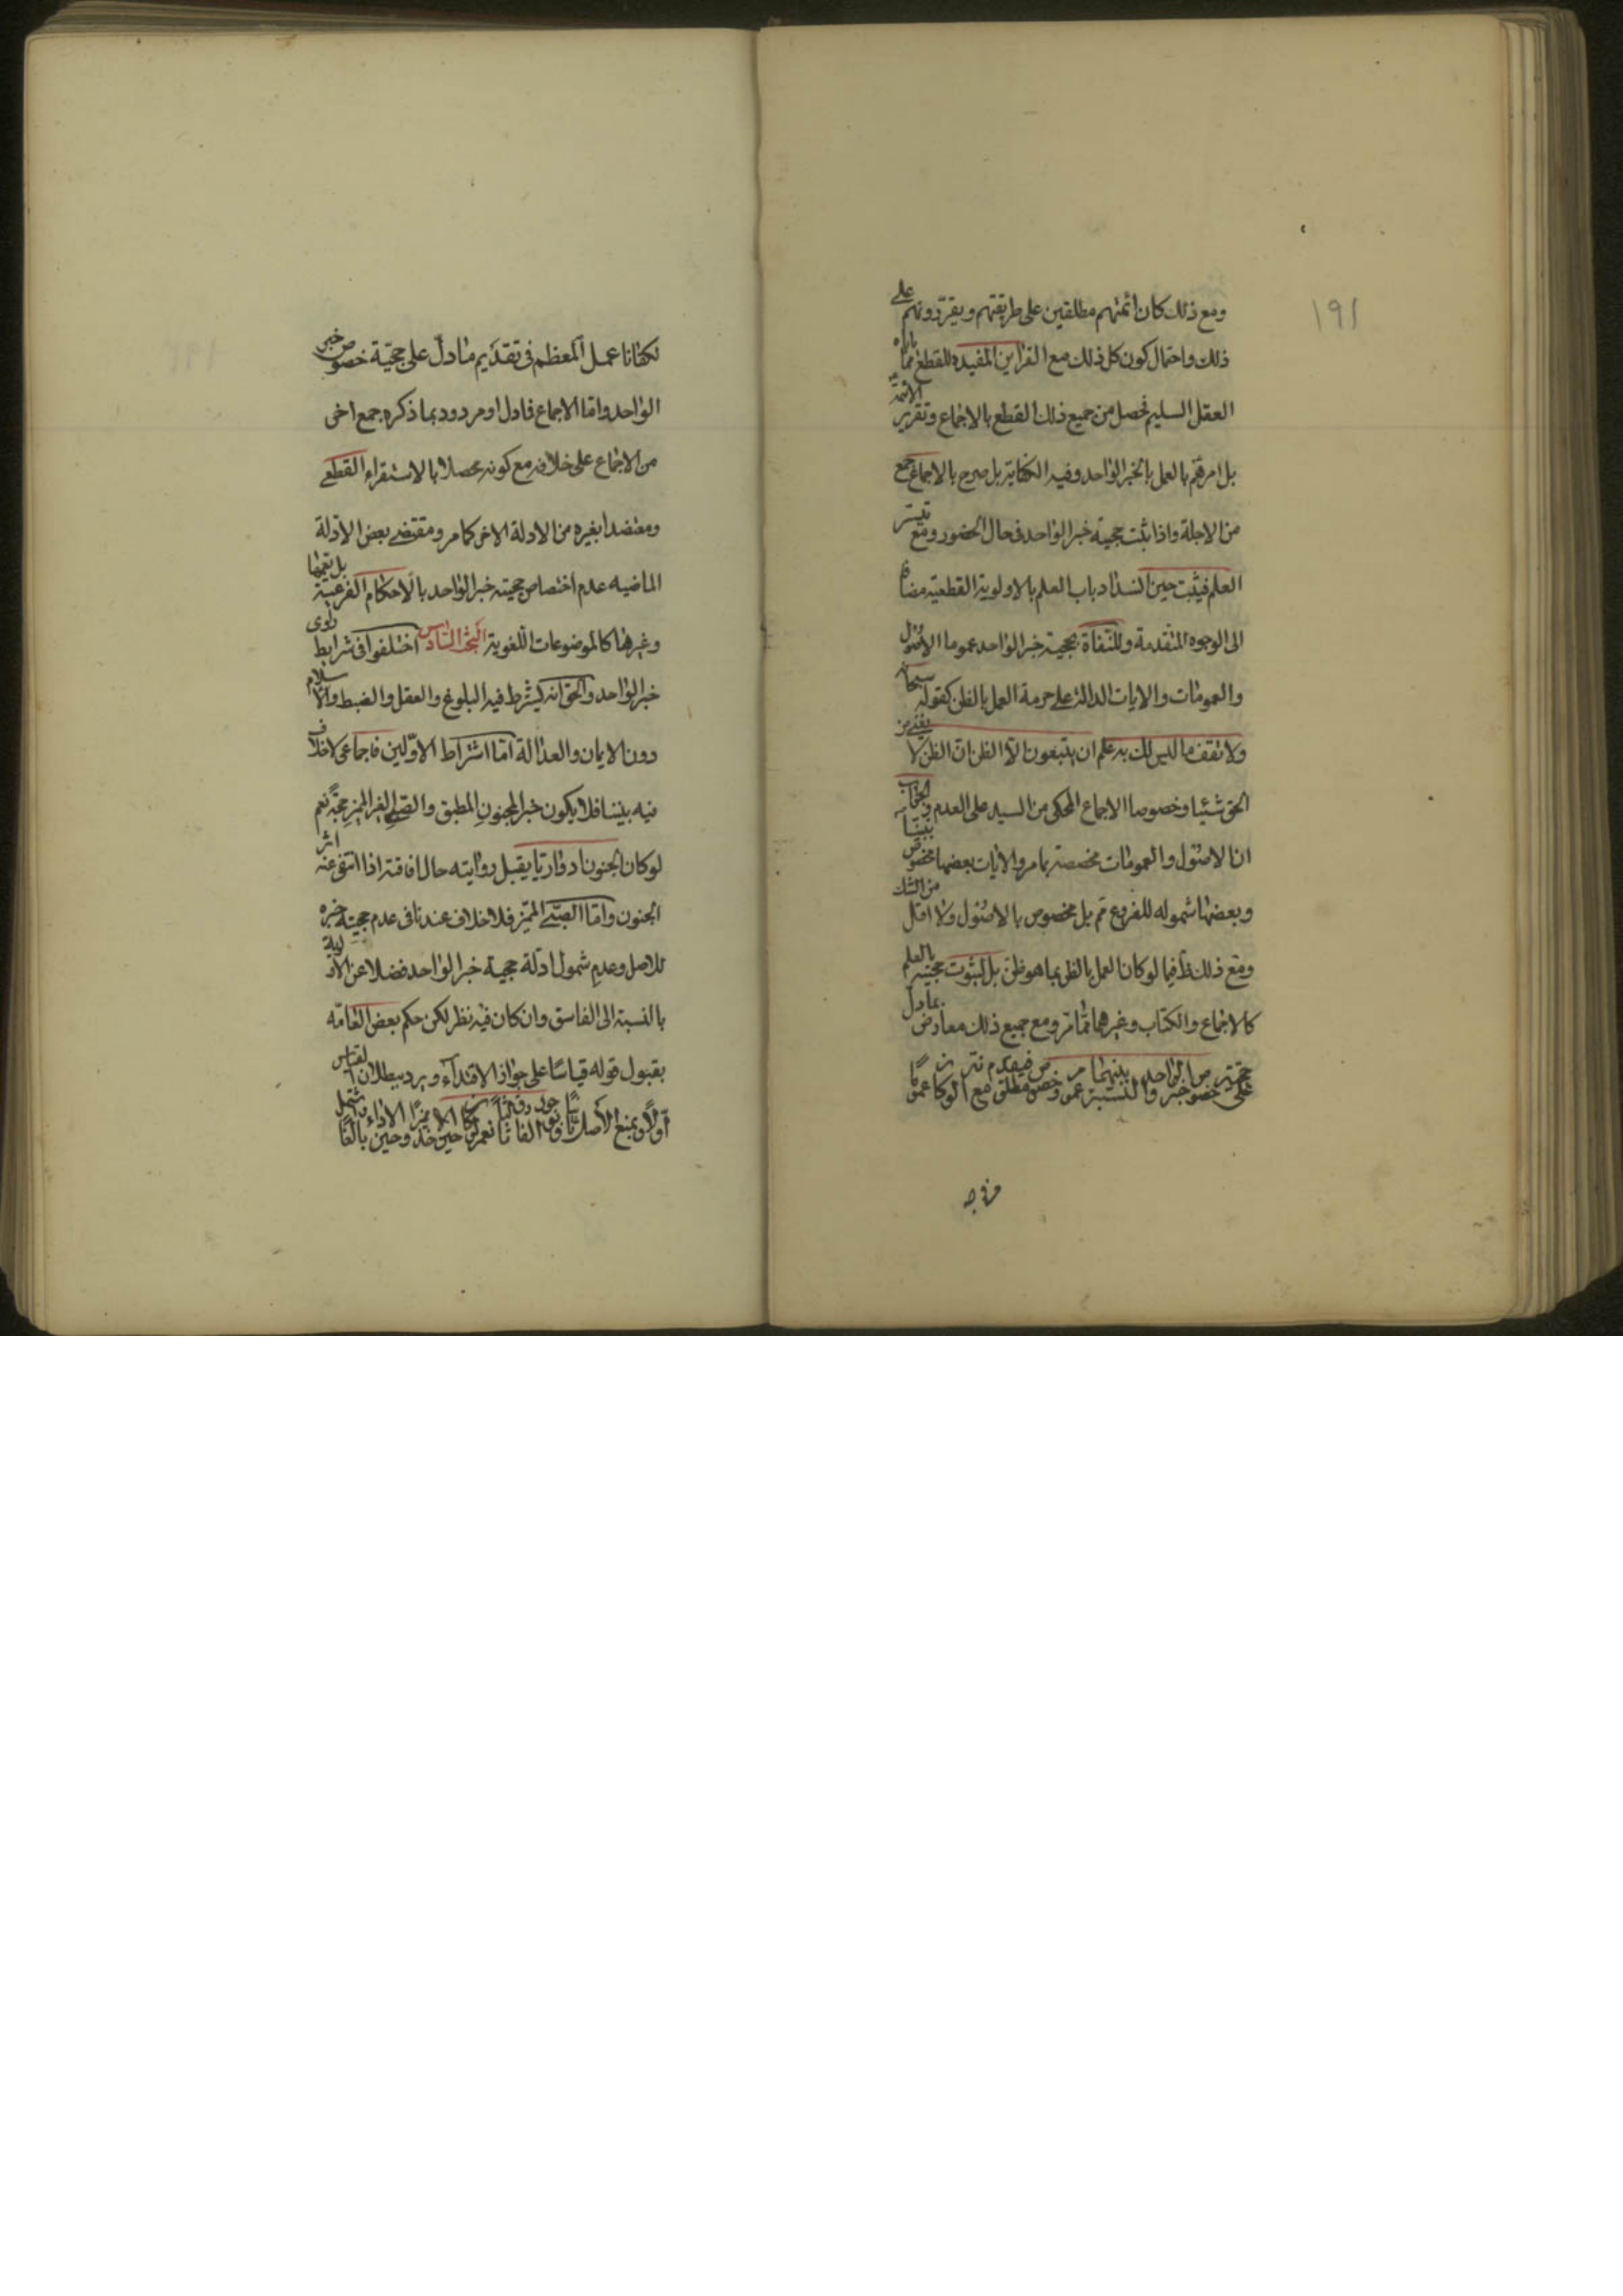 ١٩١
ومع ذلك كان أئمتهم مطلقين على طريقتهم ويقررونهم على
ذلك واحتمال كون كل ذلك مع القراين المفيدة للقطع مما ياباه
العقل السليم فحصل من جميع ذلك القطع بالاجماع وتقرير الائمة
بل امرهم بالعمل بالخبر الواحد وفيه الكفاية بل صرح بالاجماع جمع
من الاجلة واذا ثبت حجية خبر الواحد في حال الحضور ومع تيسر
العلم فيثبت حين انسداد باب العلم بالاولوية القطعية مضافا
الى الوجوه المتقدمة وللنفاة بحجية خبر الواحد عموما الاصول
والعمومات والايات الدالة على حرمة العمل بالظن كقوله سبحانه
ولا تقف ما ليس لك به علم ان يتبعون الا الظن ان الظن لا يغني من
الحق شيئا وخصوصا الاجماع المحكى من السيد على العدم والجواب
ان الاصول والعمومات مخصصة بما مر والايات بعضها مخصوص ببينا
وبعضها شموله للفروع مم بل مخصوص بالاصول ولا اقل من الشك
ومع ذلك فيما لو كان العمل بالظن بما هو ظن بل لثبوت حجيته بالعلم
كالاجماع والكتاب وغيرهما مما مر ومع جميع ذلك معارض بما دل
على حجية خصوص خبر الواحد والنسبة بينهما عموم وخصوص مطلق فيقدم مع
لكفانا عمل المعظم في تقديم ما دل على حجية خصوص خبر
الواحد واما الاجماع فاول او مردود بما ذكره جمع اخى
من الاجماع على خلافه مع كونه محصلا بالاستقراء القطعي
ومعتضدا بغيره من الادلة الاخى كما مر ومقتضى بعض الادلة
الماضيه عدم اختصاص حجية خبر الواحد بالاحكام الفرعية بل تعمها
وغيرها كالموضوعات اللغوية البحث السادس اختلفوا في شرايط راوى
خبر الواحد والحق انه يشترط فيه البلوغ والعقل والضبط والاسلام
دون الايمان والعدالة اما اشتراط الاولين فاجماعى لا خلاف
فيه بيننا فلا يكون خبر المجنون المطبق والصبي الغير المميز حجة نعم
لو كان الجنون ادواريا يقبل روايته حال افاقته اذا انتفى عنه اثر
الجنون واما الصبي المميز فلا خلاف عندنا في عدم حجية خبره
للاصل وعدم شمول ادلة حجية خبر الواحد فضلا عن الاولوية
بالنسبة الى الفاسق وان كان فيه نظر لكن حكم بعض العامة
بقبول قوله قياسا على جواز الاقتداء ويرد ببطلان القياس
اولا وبمنع الاصل ثانيا وبوجود الفارق ثالثا نعم لو كان حين الاخذ مميزا وحين الاداء بالغا